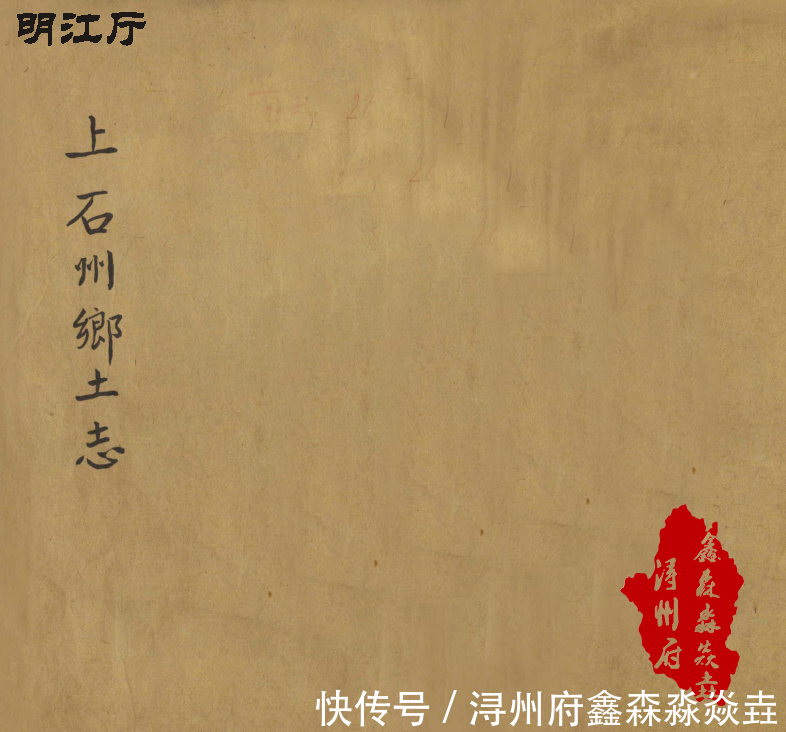 明江厅
上石州鄉土志
鑫森淼焱垚
浔州府
快传号 / 浔州府鑫森淼焱垚